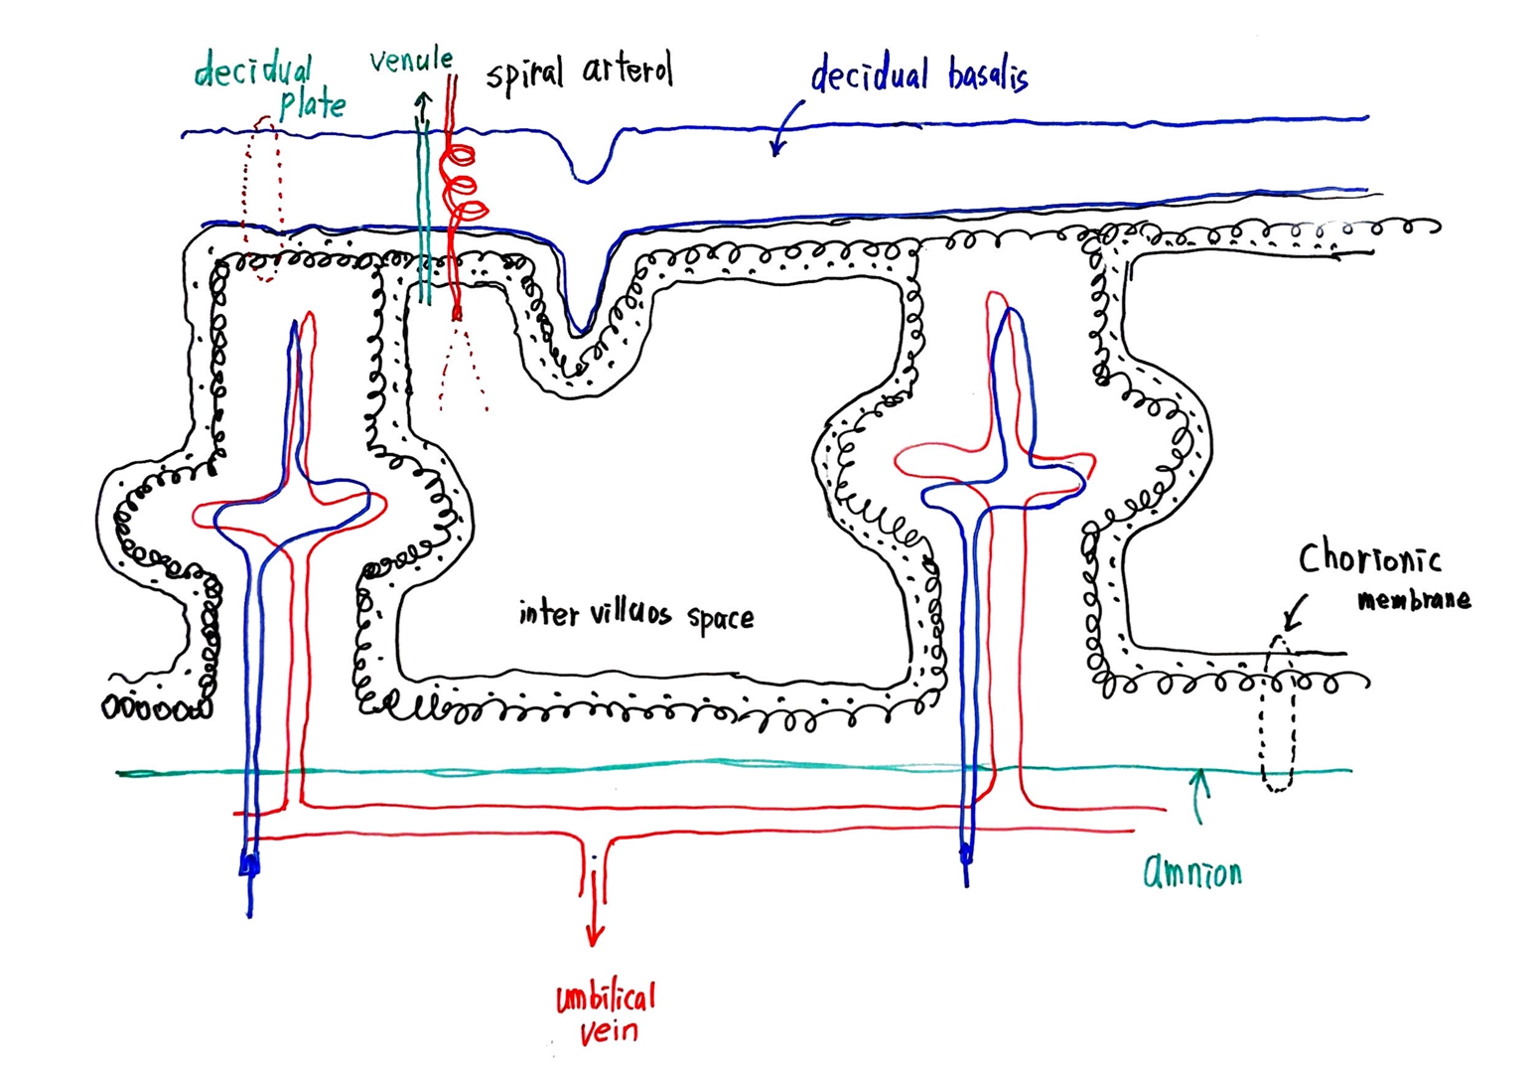 decidual
plate
venule
spiral arterol
decidual basalis
inter villuos space
Chorionic
membrane
amnion
umbilical
vein